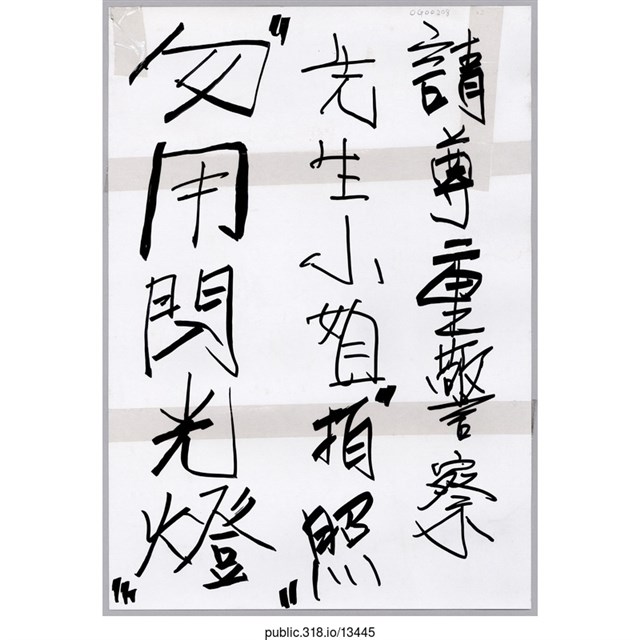 OG00213
請尊重警察
先生小姐"拍照"
"勿用閃光燈"
public.318.io/13445